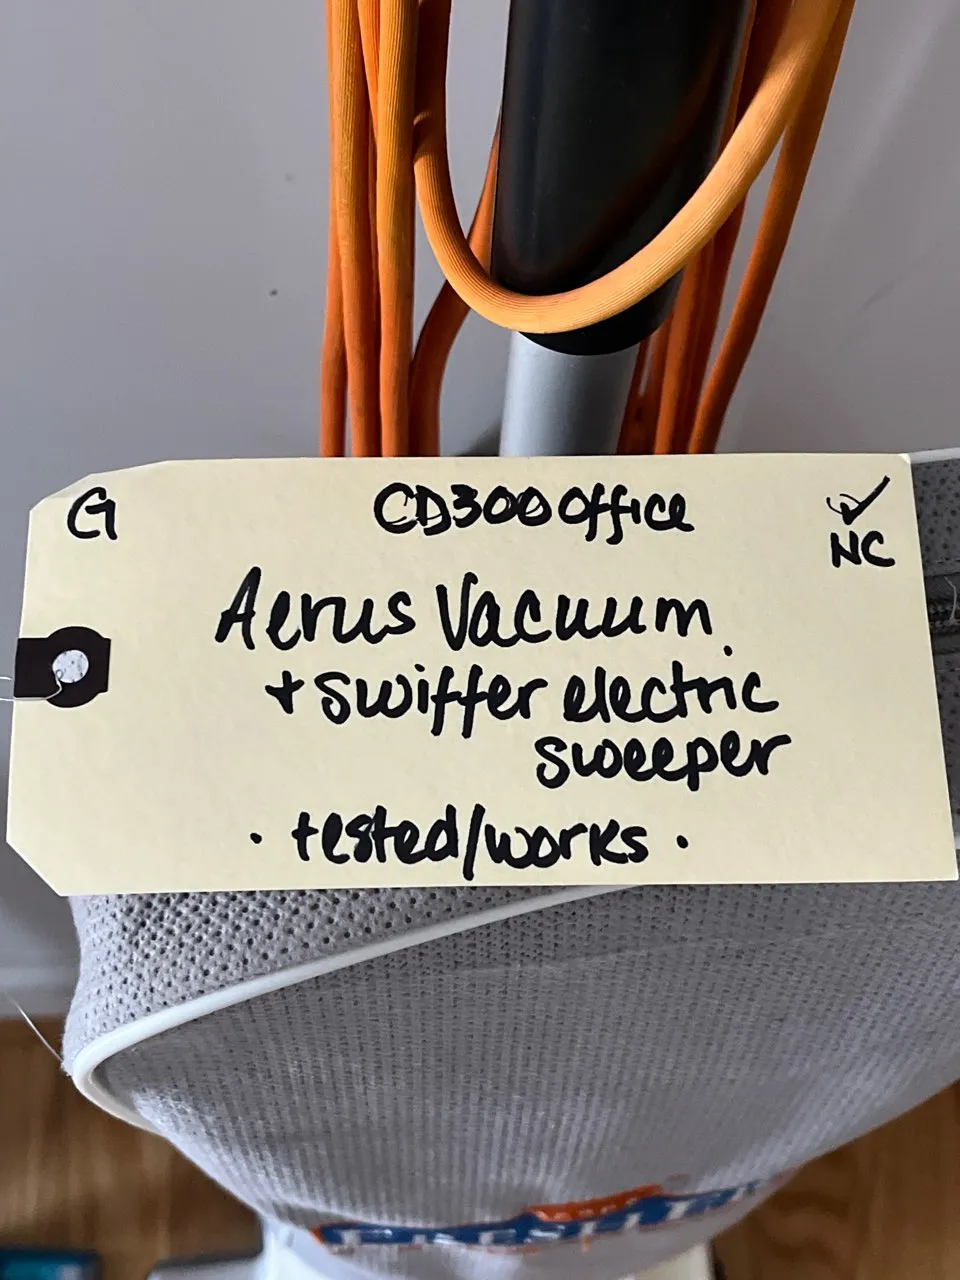 G CD300 Office ✓
NC
Aerus Vacuum
+ swiffer electric
sweeper
· tested/works ·